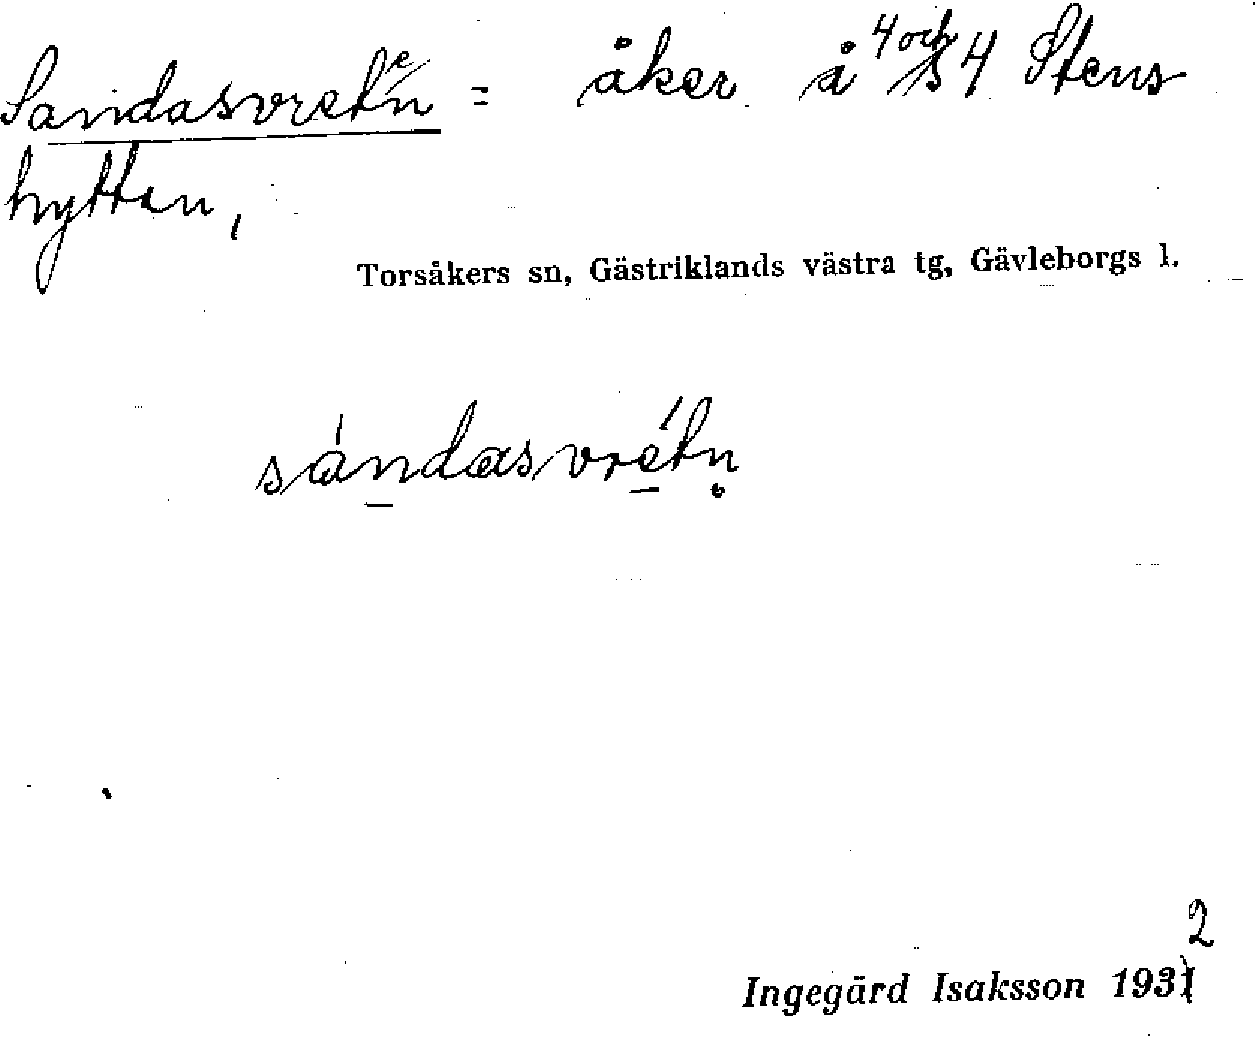 Sandasvreten = åker å 4 och 4 Stens
hyttan,
Torsåkers sn, Gästriklands västra tg, Gävleborgs l.
sándasvrétn̥
2
Ingegärd Isaksson 1931